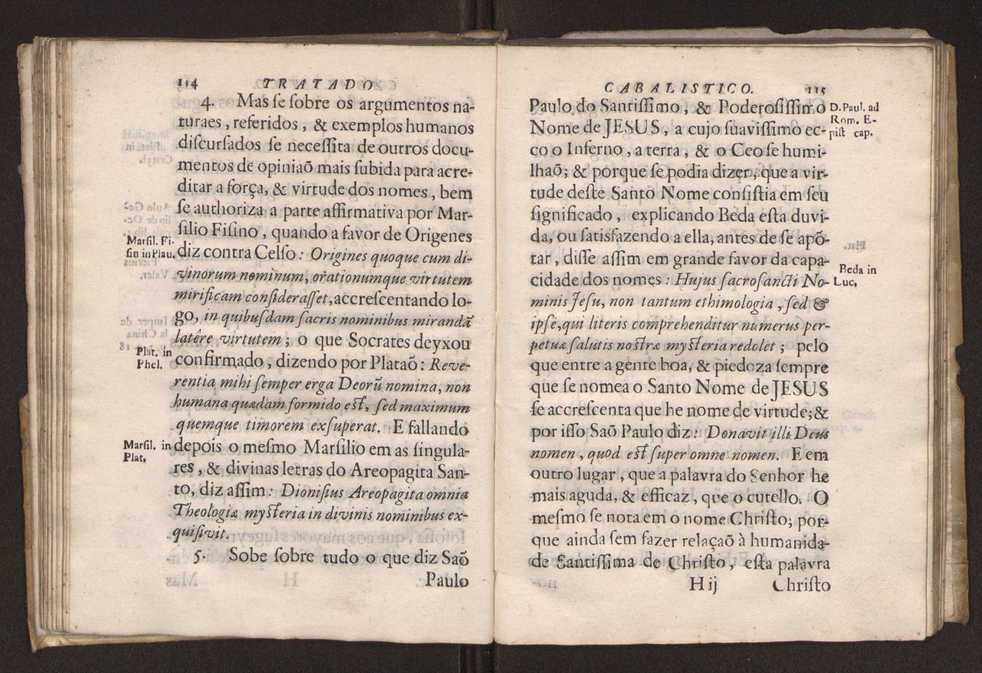 114 TRATADO
4. Mas ſe ſobre os argumentos na-
turaes, referidos, & exemplos humanos
diſcurſados ſe neceſſita de outros docu-
mentos de opiniaõ mais ſubida para acre-
ditar a força, & virtude dos nomes, bem
ſe authoriza a parte affirmativa por Mar-
ſilio Fiſino, quando a favor de Origenes
Marſil. Fi-
ſin in Plau.
diz contra Celſo: Origines quoque cum di-
vinorum nominum, orationumque virtutem
mirificam conſideraſſet, accreſcentando lo-
go, in quibuſdam ſacris nominibus mirandã
latêre virtutem; o que Socrates deyxou
Plat. in
Phel.
confirmado, dizendo por Plataõ: Reve-
rentia mihi ſemper erga Deorũ nomina, non
humana quædam formido eſt, ſed maximum
quemque timorem exſuperat. E fallando
Marſil. in
Plat,
depois o meſmo Marſilio em as ſingula-
res, & divinas letras do Areopagita San-
to, diz aſſim: Dioniſius Areopagita omnia
Theologiæ myſteria in divinis nominibus ex-
quiſivit.
5. Sobe ſobre tudo o que diz Saõ
Paulo
CABALISTICO. 115
Paulo do Santiſſimo, & Poderoſiſſimo
D. Paul. ad
Rom. E-
piſt cap.
Nome de JESUS, a cujo ſuaviſſimo ec-
co o Inferno, a terra, & o Ceo ſe humi-
lhaõ; & porque ſe podia dizer, que a vir-
tude deſte Santo Nome conſiſtia em ſeu
ſignificado, explicando Beda eſta duvi-
da, ou ſatisfazendo a ella, antes de ſe apõ-
tar, diſſe aſſim em grande favor da capa-
Beda in
Luc,
cidade dos nomes: Hujus ſacroſancti No-
minis Jeſu, non tantum ethimologia, ſed &
ipſe, qui literis comprehenditur numerus per-
petuæ ſalutis noſtræ myſteria redolet; pelo
que entre a gente boa, & piedoza ſempre
que ſe nomea o Santo Nome de JESUS
ſe accreſcenta que he nome de virtude; &
por iſſo Saõ Paulo diz: Donavit illi Deus
nomen, quod eſt ſuper omne nomen. E em
outro lugar, que a palavra do Senhor he
mais aguda, & efficaz, que o cutello. O
meſmo ſe nota em o nome Chriſto; por-
que ainda ſem fazer relaçaõ à humanida-
de Santiſſima de Chriſto, eſta palavra
H ij Chriſto